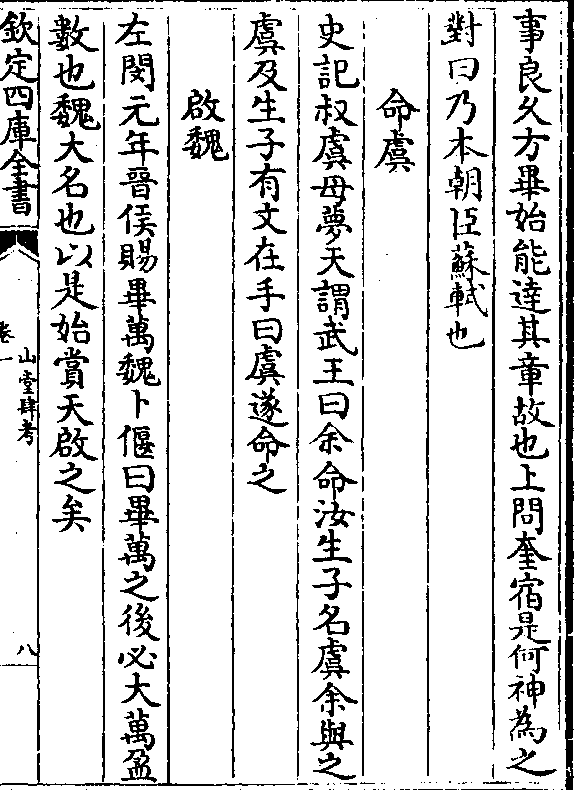 事良久方畢始能達其章故也上問奎宿是何神為之
對曰乃本朝臣蘇軾也
命虞
史記叔虞母夢天謂武王曰余命汝生子名虞余與之
虞及生子有文在手曰虞遂命之
啟魏
左閔元年晉侯賜畢萬魏卜偃曰畢萬之後必大萬盈
數也魏大名也以是始賞天啟之矣
欽定四庫全書
山堂肆考
卷一
八